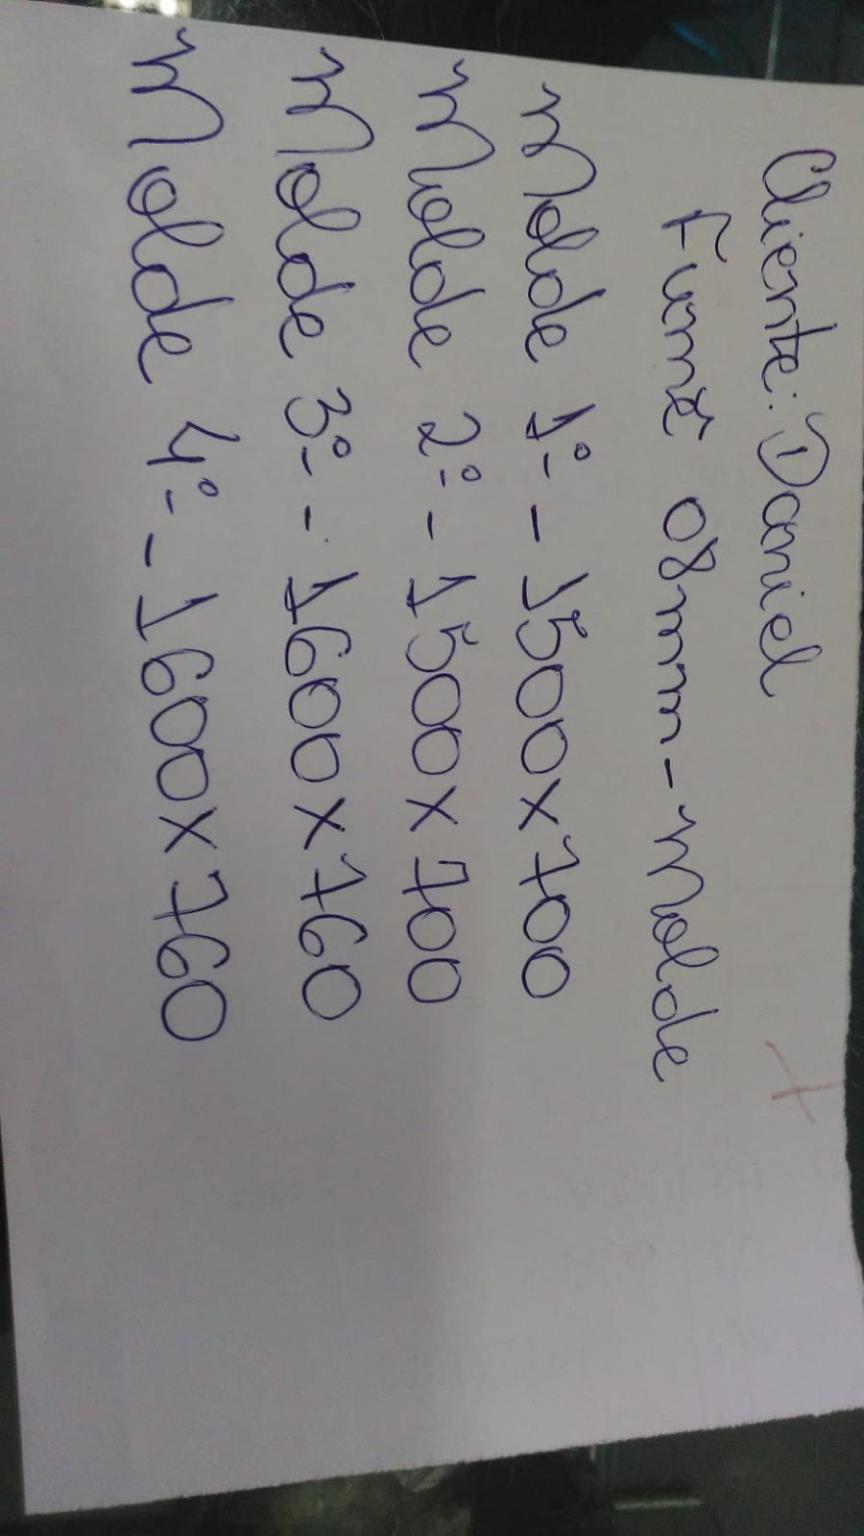 Cliente: Daniel
Fumê 08mm - Molde
Molde 1º - 1500x700
Molde 2º - 1500x700
Molde 3º - 1600x760
Molde 4º - 1600x760